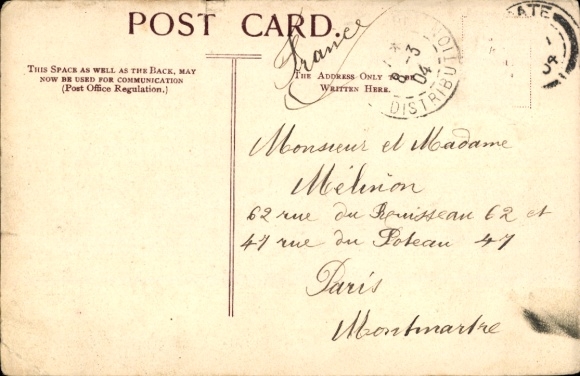 POST CARD.
France
THIS SPACE AS WELL AS THE BACK, MAY
NOW BE USED FOR COMMUNICATION
(Post Office Regulation.)
THE ADDRESS ONLY TO BE
WRITTEN HERE.
8-3
04
DISTRIBUTION
Monsieur et Madame
Mélinon
62 rue du Ruisseau 62 et
47 rue du Poteau 47
Paris
Montmartre